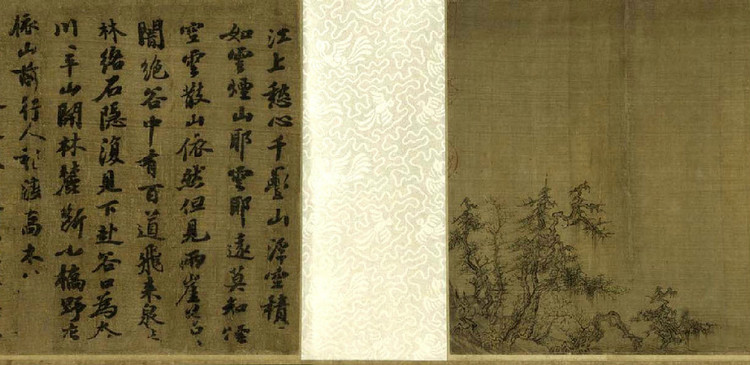 江上愁心千疊山浮空積
如雲煙山耶雲耶遠莫知煙
空雲散山依然但見兩崖蒼〻
闇絕谷中有百道飛來泉
林絡石隱復見下赴谷口為奔
川平山開林麓斷小橋野店
依山前行人稍渡喬木外